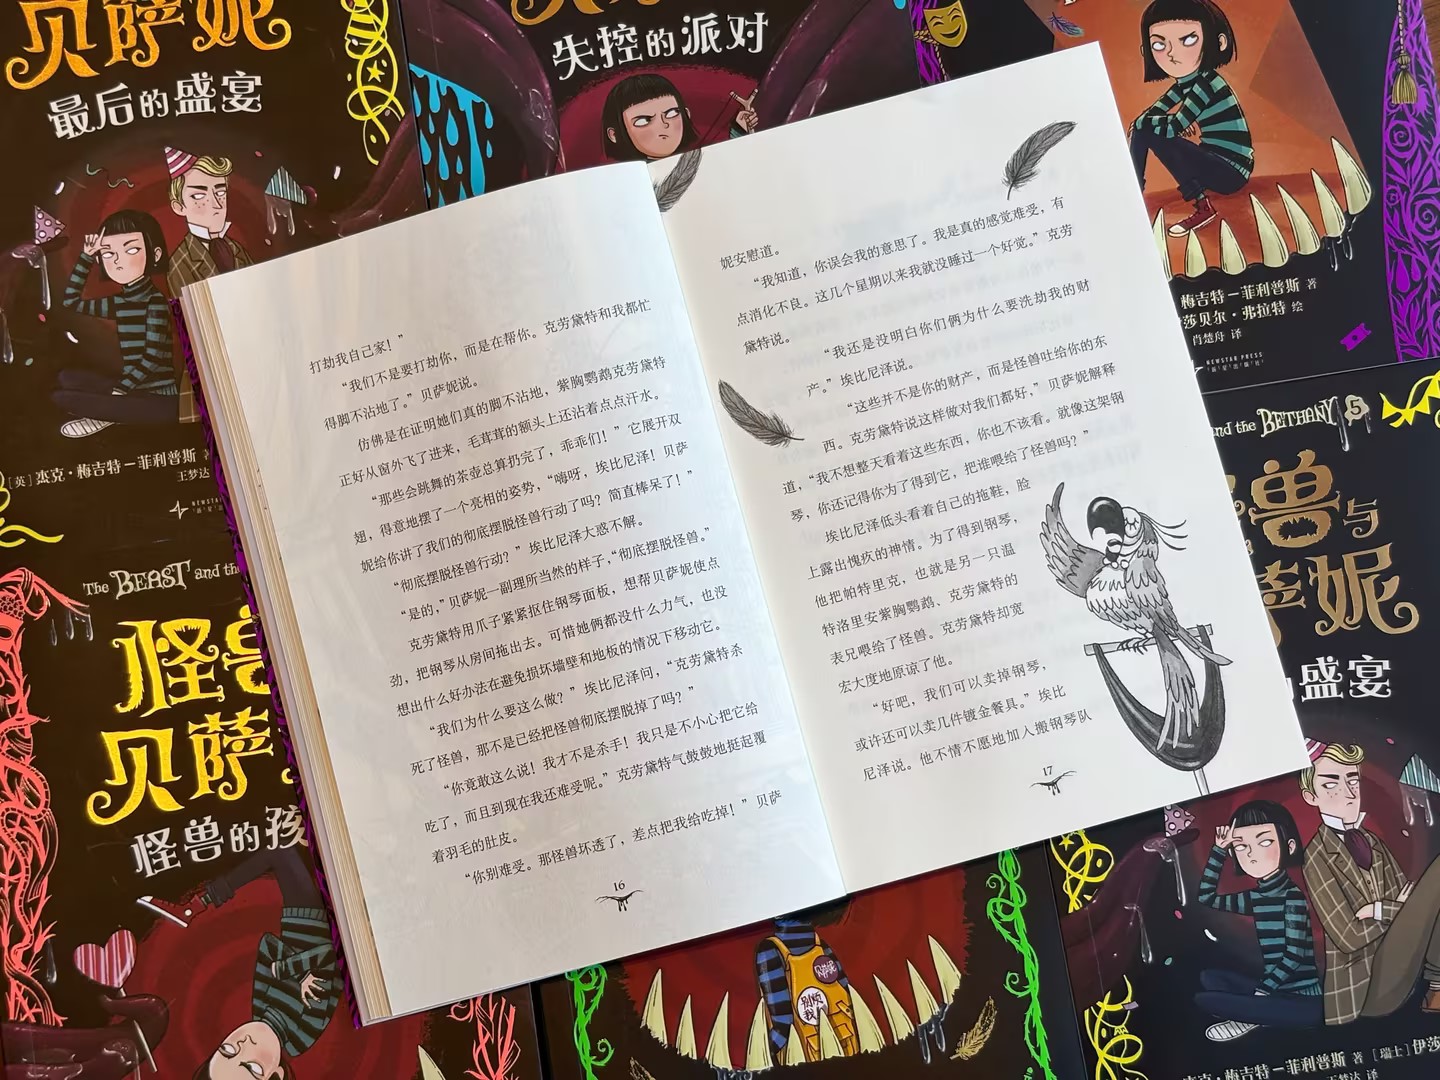 贝萨妮
最后的盛宴
[英] 杰克·梅吉特－菲利普斯 著
王梦达
NEWSTAR
失控的派对
梅吉特－菲利普斯 著
莎贝尔·弗拉特 绘
肖楚舟 译
NEWSTAR PRESS
新星出版社
The BEAST and the
怪兽
贝萨
怪兽的孩
打劫我自己家！”
“我们不是要打劫你，而是在帮你。克劳黛特和我都忙
得脚不沾地了。”贝萨妮说。
仿佛是在证明她们真的脚不沾地，紫胸鹦鹉克劳黛特
正好从窗外飞了进来，毛茸茸的额头上还沾着点点汗水。
“那些会跳舞的茶壶总算扔完了，乖乖们！”它展开双
翅，得意地摆了一个亮相的姿势，“嗨呀，埃比尼泽！贝萨
妮给你讲了我们的彻底摆脱怪兽行动了吗？简直棒呆了！”
“彻底摆脱怪兽行动？”埃比尼泽大惑不解。
“是的，”贝萨妮一副理所当然的样子，“彻底摆脱怪兽。”
克劳黛特用爪子紧紧抠住钢琴面板，想帮贝萨妮使点
劲，把钢琴从房间拖出去。可惜她俩都没什么力气，也没
想出什么好办法在避免损坏墙壁和地板的情况下移动它。
“我们为什么要这么做？”埃比尼泽问，“克劳黛特杀
死了怪兽，那不是已经把怪兽彻底摆脱掉了吗？”
“你竟敢这么说！我才不是杀手！我只是不小心把它给
吃了，而且到现在我还难受呢。”克劳黛特气鼓鼓地挺起覆
着羽毛的肚皮。
“你别难受。那怪兽坏透了，差点把我给吃掉！”贝萨
16
妮安慰道。
“我知道，你误会我的意思了。我是真的感觉难受，有
点消化不良。这几个星期以来我就没睡过一个好觉。”克劳
黛特说。
“我还是没明白你们俩为什么要洗劫我的财
产。”埃比尼泽说。
“这些并不是你的财产，而是怪兽吐给你的东
西。克劳黛特说这样做对我们都好，”贝萨妮解释
道，“我不想整天看着这些东西，你也不该看。就像这架钢
琴，你还记得你为了得到它，把谁喂给了怪兽吗？”
埃比尼泽低头看着自己的拖鞋，脸
上露出愧疚的神情。为了得到钢琴，
他把帕特里克，也就是另一只温
特洛里安紫胸鹦鹉、克劳黛特的
表兄喂给了怪兽。克劳黛特却宽
宏大度地原谅了他。
“好吧，我们可以卖掉钢琴，
或许还可以卖几件镀金餐具。”埃比
尼泽说。他不情不愿地加入搬钢琴队
17
and the BETHANY 5
兽与
妮
盛宴
贝萨妮
别烦
我
杰克·梅吉特－菲利普斯 著 [瑞士] 伊莎
王梦达 译